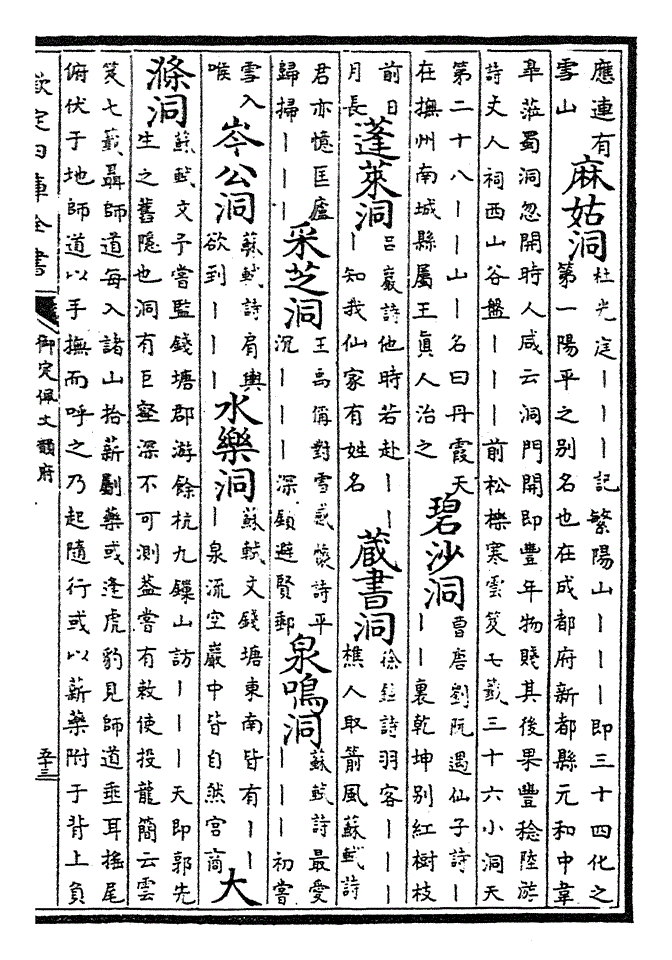 應連有
雪山
麻姑洞
杜光庭｜｜｜記繁陽山｜｜｜即三十四化之
第一陽平之别名也在成都府新都縣元和中韋
臯蒞蜀洞忽開時人咸云洞門開即豐年物賤其後果豐稔陸游
詩丈人祠西山谷盤｜｜｜前松櫟寒雲笈七籤三十六小洞天
第二十八｜｜山｜名曰丹霞天
在撫州南城縣屬王眞人治之
碧沙洞
曹唐劉阮遇仙子詩｜
｜｜裏乾坤别紅樹枝
前日
月長
蓬萊洞
吕巖詩他時若赴｜｜
｜知我仙家有姓名
藏書洞
徐鉉詩羽客｜｜｜
樵人取箭風蘇軾詩
君亦憶匡廬
歸掃｜｜｜
采芝洞
王禹偁對雪感懷詩平
沉｜｜｜深頗避賢郵
泉鳴洞
蘇軾詩最愛
｜｜｜初嘗
雪入
喉
岑公洞
蘇軾詩肩輿
欲到｜｜｜
水樂洞
蘇軾文錢塘東南皆有｜｜
｜泉流空巖中皆自然宫商
大
滌洞
蘇軾文子嘗監錢塘郡游餘杭九鏁山訪｜｜｜天即郭先
生之舊隱也洞有巨壑深不可測葢嘗有敕使投龍簡云雲
笈七籤聶師道每入諸山拾薪劚藥或逢虎豹見師道垂耳摇尾
俯伏于地師道以手撫而呼之乃起隨行或以薪藥附于背上負
欽定四庫全書
御定佩文韻府
五十三